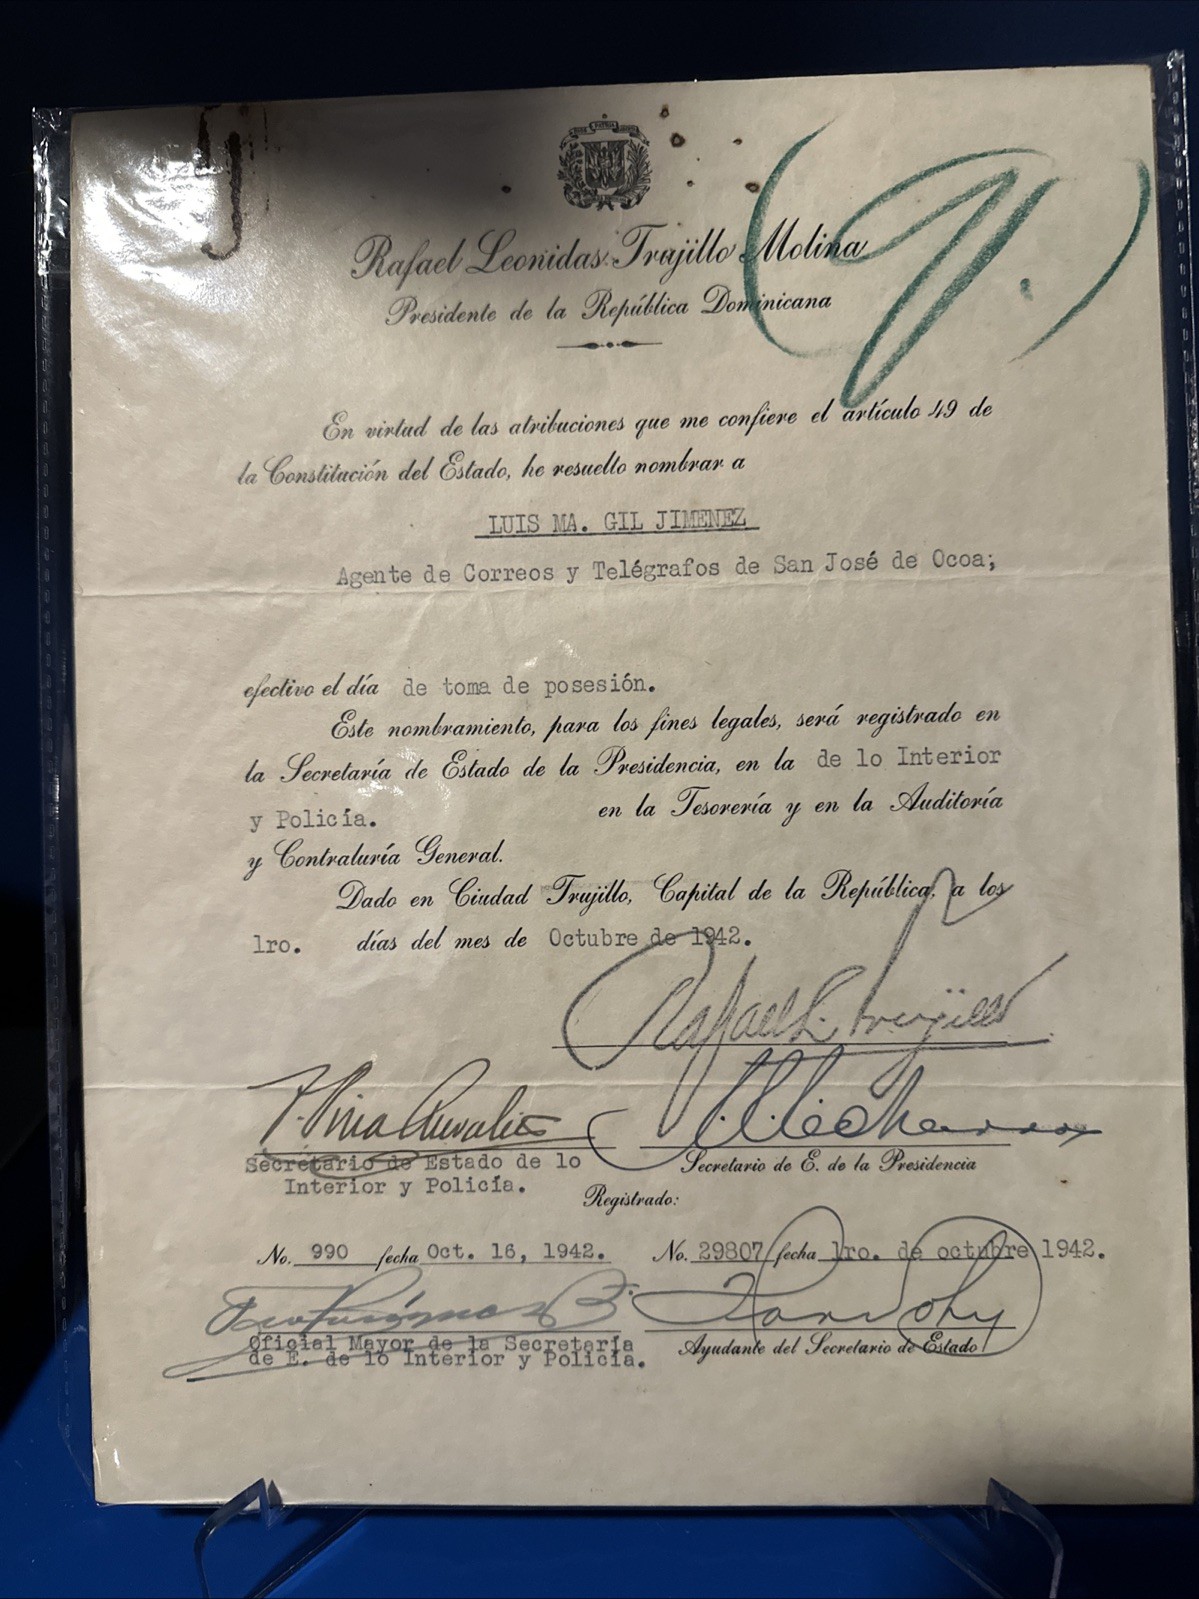 Rafael Leonidas Trujillo Molina
Presidente de la República Dominicana
En virtud de las atribuciones que me confiere el artículo 49 de
la Constitución del Estado, he resuelto nombrar a
LUIS MA. GIL JIMENEZ
Agente de Correos y Telégrafos de San José de Ocoa;
efectivo el día de toma de posesión.
Este nombramiento, para los fines legales, será registrado en
la Secretaría de Estado de la Presidencia, en la de lo Interior
y Policía. en la Tesorería y en la Auditoría
y Contraluría General.
Dado en Ciudad Trujillo, Capital de la República, a los
1ro. días del mes de Octubre de 1942.
Rafael L. Trujillo
Secretario de Estado de lo
Interior y Policía.
Secretario de E. de la Presidencia
Registrado:
No. 990 fecha Oct. 16, 1942. No. 29807 fecha 1ro. de octubre 1942.
Oficial Mayor de la Secretaría
de E. de lo Interior y Policía.
Ayudante del Secretario de Estado